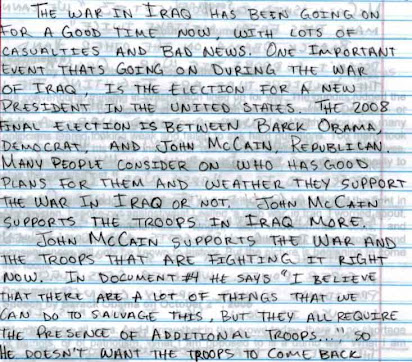 THE WAR IN IRAQ HAS BEEN GOING ON
FOR A GOOD TIME NOW, WITH LOTS OF
CASUALTIES AND BAD NEWS. ONE IMPORTANT
EVENT THATS GOING ON DURING THE WAR
OF IRAQ, IS THE ELECTION FOR A NEW
PRESIDENT IN THE UNITED STATES. THE 2008
FINAL ELECTION IS BETWEEN BARCK OBAMA,
DEMOCRAT, AND JOHN MCCAIN, REPUBLICAN.
MANY PEOPLE CONSIDER ON WHO HAS GOOD
PLANS FOR THEM AND WEATHER THEY SUPPORT
THE WAR IN IRAQ OR NOT. JOHN MCCAIN
SUPPORTS THE TROOPS IN IRAQ MORE.
JOHN MCCAIN SUPPORTS THE WAR AND
THE TROOPS THAT ARE FIGHTING IT RIGHT
NOW. IN DOCUMENT #4 HE SAYS "I BELIEVE
THAT THERE ARE A LOT OF THINGS THAT WE
CAN DO TO SALVAGE THIS, BUT THEY ALL REQUIRE
THE PRESENCE OF ADDITIONAL TROOPS..." SO
HE DOESN'T WANT THE TROOPS TO COME BACK